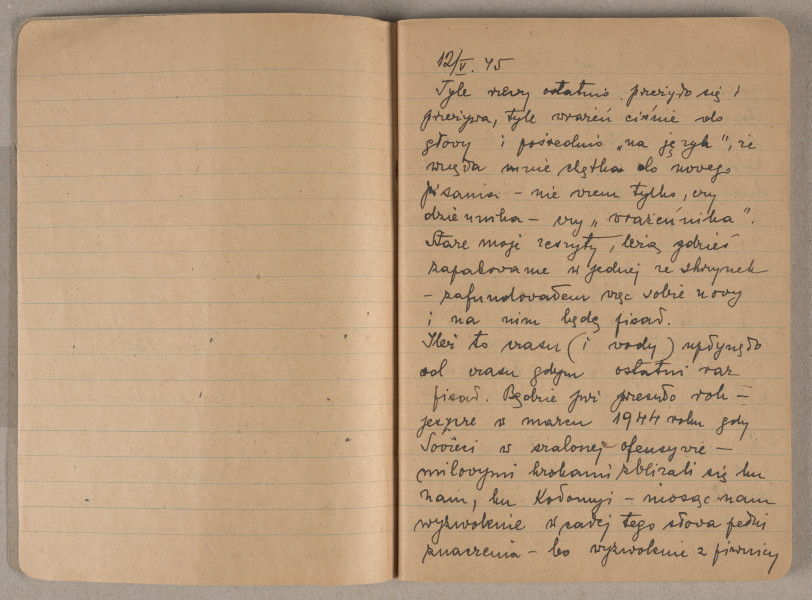 12/V. 45
Tyle rzeczy ostatnio przeżyło się i
przeżywa, tyle wrażeń ciśnie do
głowy i pośrednio „na język”, że
wzięła mnie chętka do nowego
pisania – nie wiem tylko, czy
dziennika – czy „wrażeńnika”.
Stare moje zeszyty, leżą gdzieś
zapakowane w jednej ze skrzynek
– zafundowałem więc sobie nowy
i na nim będę pisał.
Ileż to czasu (i wody) upłynęło
od czasu gdym ostatni raz
pisał. Będzie już przeszło rok –
jeszcze w marcu 1944 roku gdy
Sovieci w szalonej ofensywie –
milowymi krokami zbliżali się ku
nam, ku Kołomyi – niosąc nam
wyzwolenie w całej tego słowa pełni
znaczenia – bo wyzwolenie z piwnicy